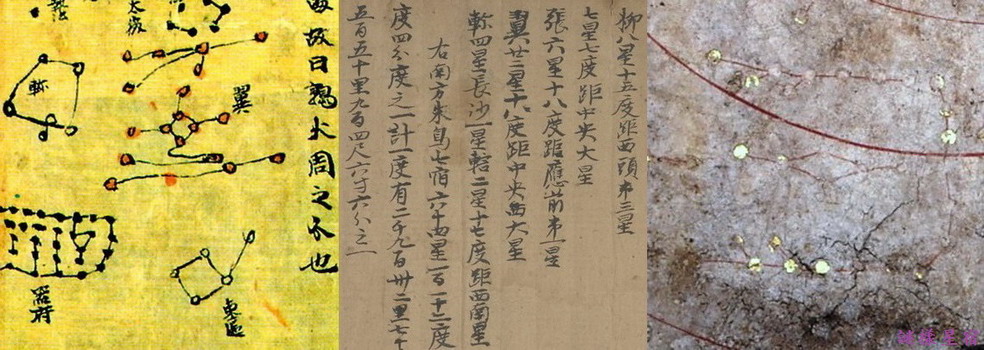 故曰鶉火周之分也
太微
翼
軫
器府
柳八星十五度距西頭弟三星
七星七度距中央大星
張六星十八度距應前弟一星
翼廿二星十八度距中央西大星
軫四星長沙一星轄二星十七度距西南星
右南方朱鳥七宿六十四星一百一十二度
度四分度之一計一度有二千九百卅二里七十
五百五十里九百四尺六寸六分之二